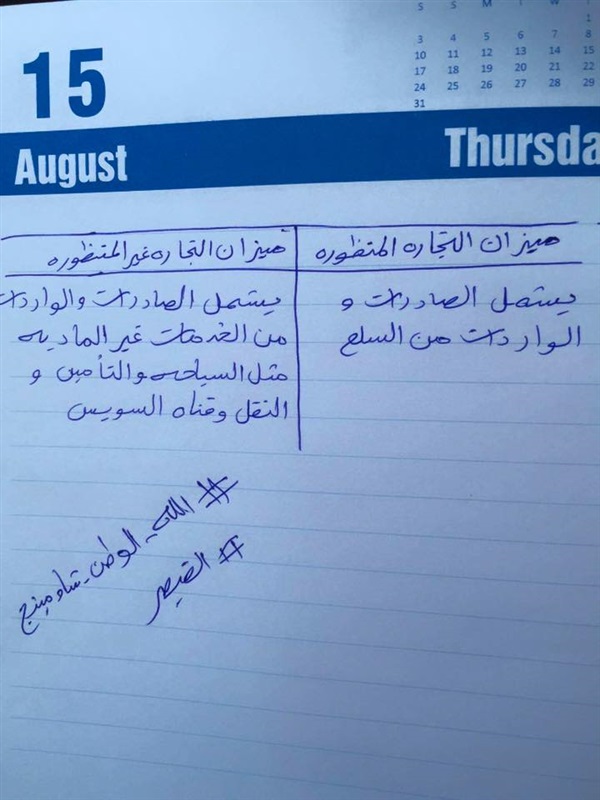 S S M T W T
1
3 4 5 6 7 8
10 11 12 13 14 15
17 18 19 20 21 22
24 25 26 27 28 29
31
15
August Thursda
ميزان التجاره المنظوره
يشمل الصادرات و
الواردات من السلع
ميزان التجاره غير المنظوره
يشمل الصادرات والواردات
من الخدمات غير الماديه
مثل السياحه والتأمين و
النقل وقناه السويس
#الله_الوطن_شاومينج
#القيصر